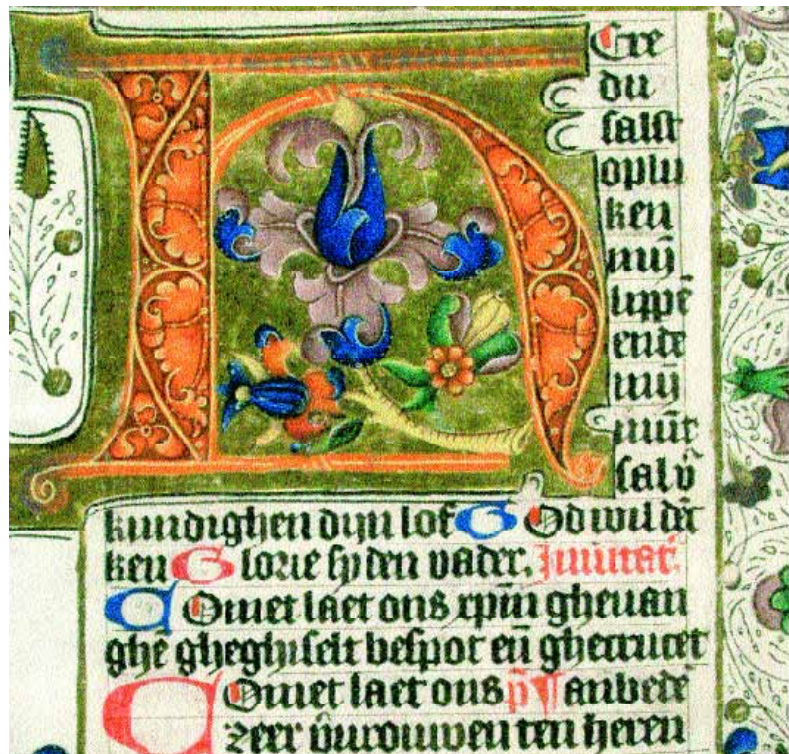 HEre
du
salst
oplu
ken
mij
lippē
ende
mij
mūt
sal v̄
kundighen dijn lof G Od wil dēc
ken G lorie sy den vader. Inuitat.
C Omet laet ons xpm̄ gheuan
ghē gheghiselt bespot eñ ghecrucet
C Omet laet ons p̄s anbedē
zeer v̄urouwen ten heren